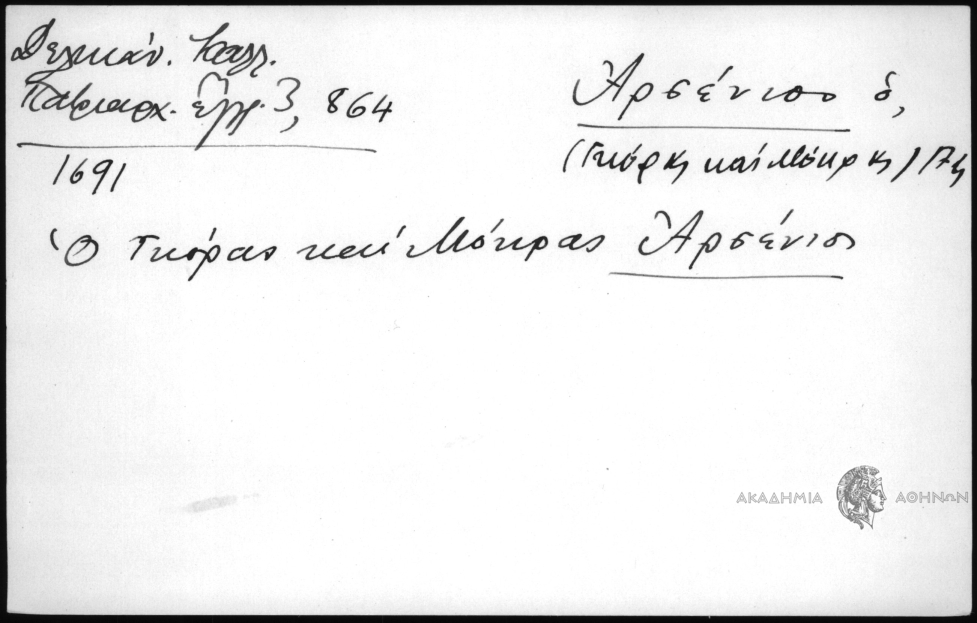 Δελικάν. Καλλ.
Πατριαρχ. ἔγγρ. 3, 864
1691
Ἀρσένιος ὁ,
(Γκόρης καί Μόκρης) 17ς
Ὁ Γκόρας καί Μόκρας Ἀρσένιος
ΑΚΑΔΗΜΙΑ ΑΘΗΝΩΝ